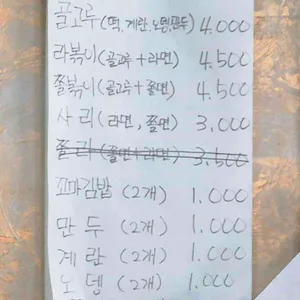 골고루(떡,계란,노뎅,만두) 4.000
라볶이(골고루+라면) 4.500
쫄볶이(골고루+쫄면) 4.500
사리(라면, 쫄면) 3.000
쫄라(쫄면+라면) 3.500
꼬마김밥 (2개) 1.000
만두 (2개) 1.000
계란 (2개) 1.000
노뎅 (2개) 1.000